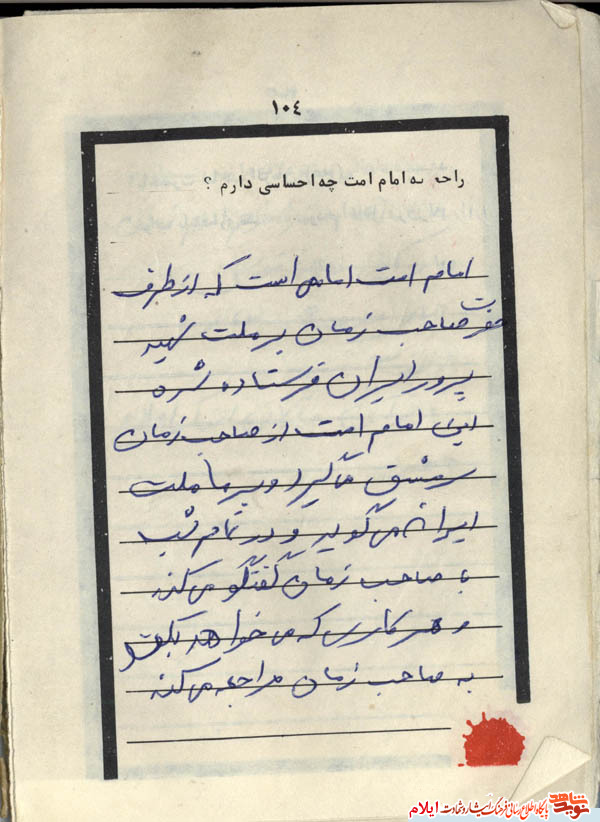 ۱۰٤
راجع به امام امت چه احساسی دارم ؟
امام امت امامی است که از طرف
حضرت صاحب زمان بر ملت شهید
پرور ایران فرستاده شده
این امام امت از صاحب زمان
سرمشق میگیرد و بر ما ملت
ایران می گوید و در تمام شب
با صاحب زمان گفتگو می کند
و هر کاری که می خواهد بکند
به صاحب زمان مراجعه می کند
نوید شاهد
پایگاه اطلاع رسانی فرهنگ ایثار و شهادت ایلام